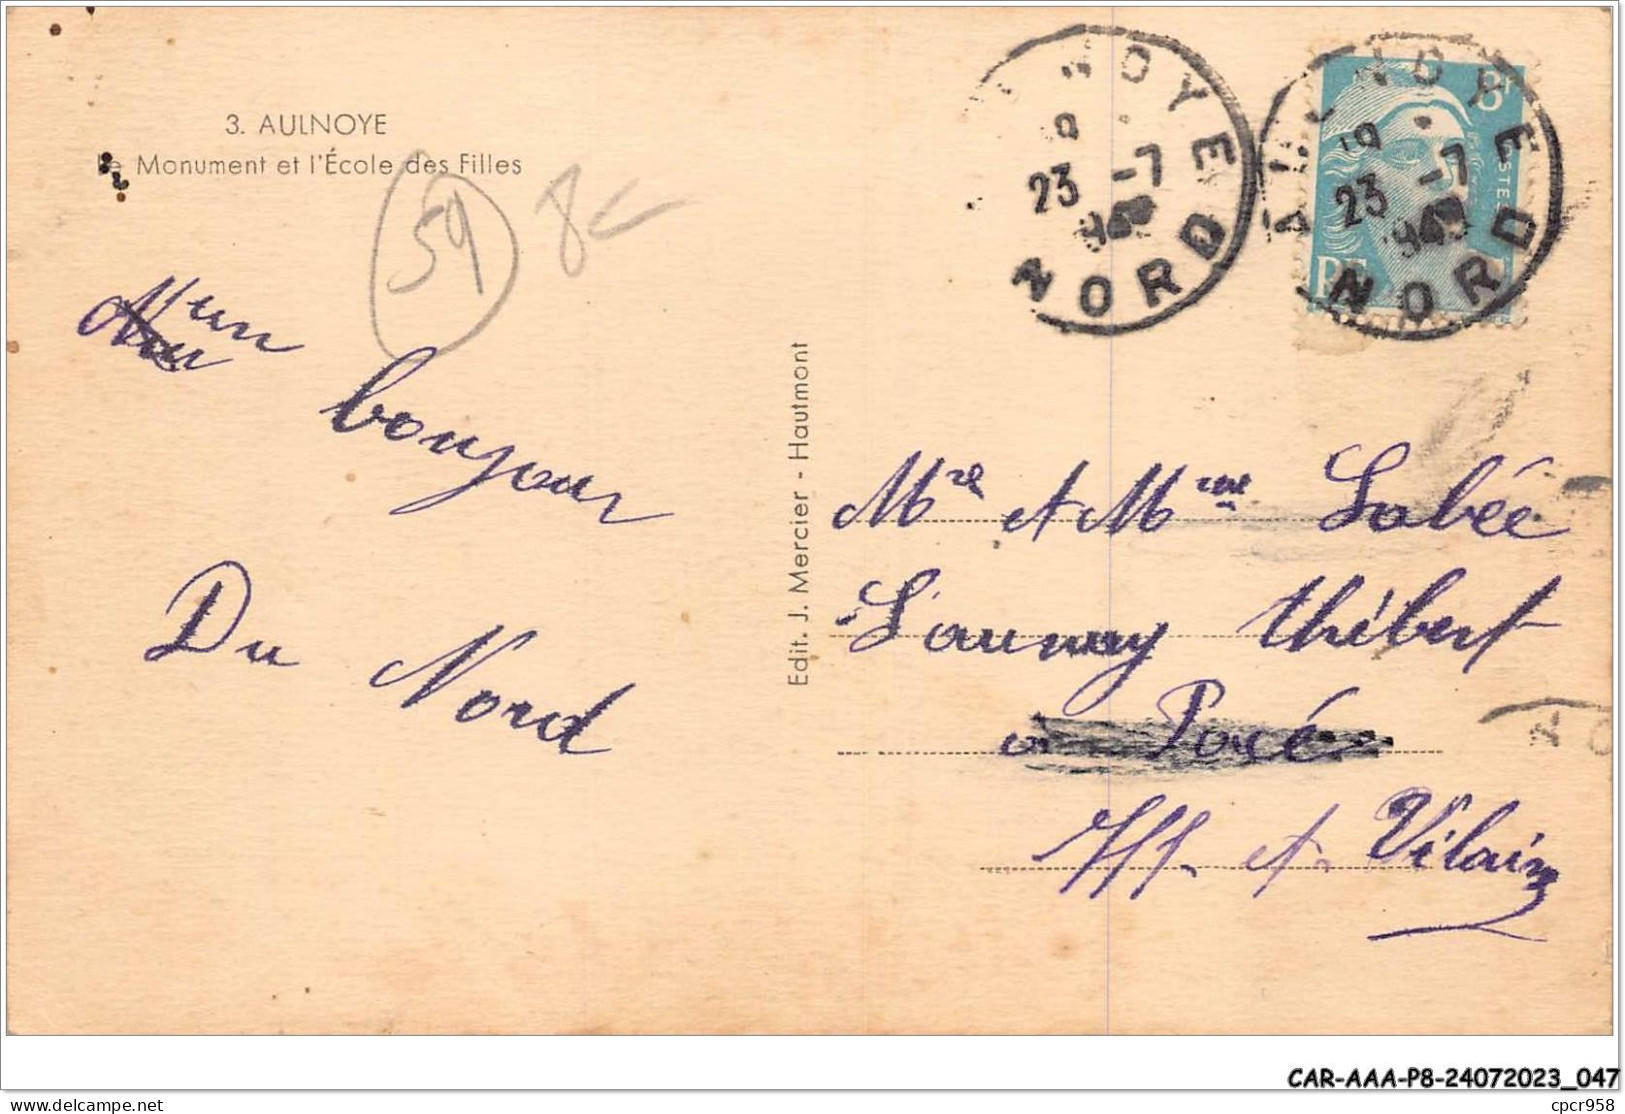 3. AULNOYE
Le Monument et l'École des Filles
59 8€
un
bonjour
Du Nord
Edit. J. Mercier - Hautmont
NOYE
23 -7
NORD
8F
POSTES
RF
AULNOYE
18
23 -7
1949
NORD
Mr et Mme Labée
Launay Thébert
a Pacé
Ille et Vilaine
CAR-AAA-P8-24072023_047
delcampe.net
cpcr958